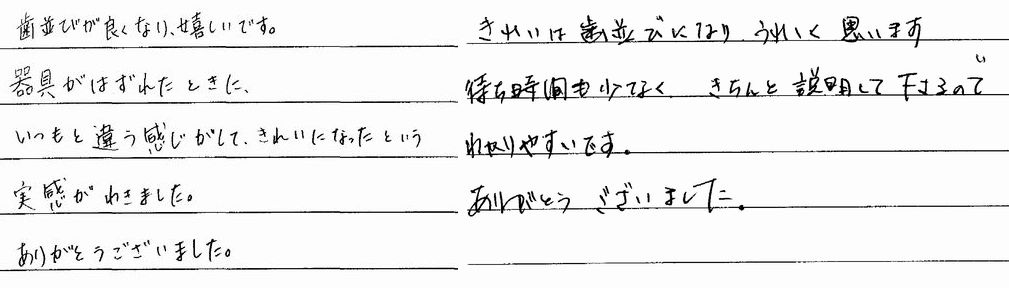 歯並びが良くなり、嬉しいです。
器具がはずれたときに、
いつもと違う感じがして、きれいになったという
実感がわきました。
ありがとうございました。
きれいな歯並びになり うれしく思います
待ち時間も少なく、きちんと説明して下さるので
わかりやすいです。
ありがとうございました。